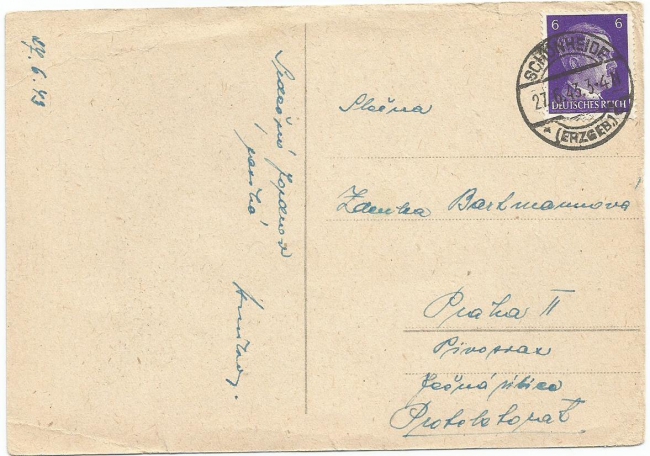 27.6.43
Srdečné
posílá
6 6
DEUTSCHES REICH
SCHÖNHEIDE
27. 6. 43. 3-4
* (ERZGEB.)
Slečna
Zdenka Bartmannová
Praha II
Pivovar
Ječná ulice
Protektorat